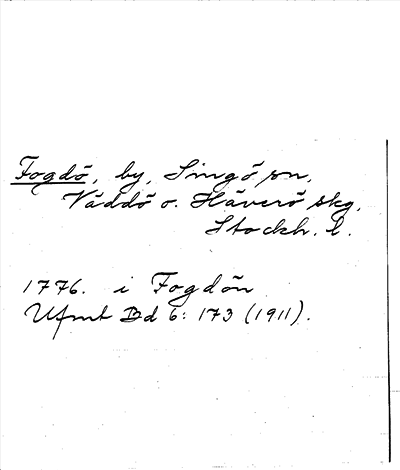 Fogdö, by, Singö sn,
Väddö o. Häverö skg,
Stockh. l.
1776. i Fogdön
Ufmt Bd 6: 173 (1911).